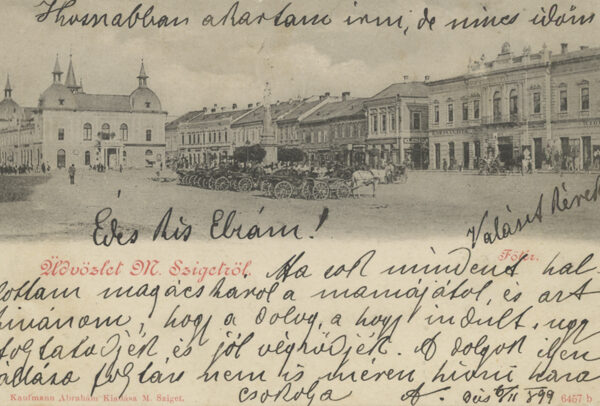 Hosszabban akartam írni, de nincs időm
Édes kis Ebrám!
Választ kérek
Üdvözlet M. Szigetről.
Főtér.
Ma sok mindent hal-
lottam magácskáról a mamájától, és azt
kívánom, hogy a dolog, a hogy indult, úgy
folytatódjék és jól végződjék. A dolgok ilyen
állása folytán nem is merem hívni haza
csókolja A.
Kaufmann Ábrahám Kiadása M. Sziget.
6457 b